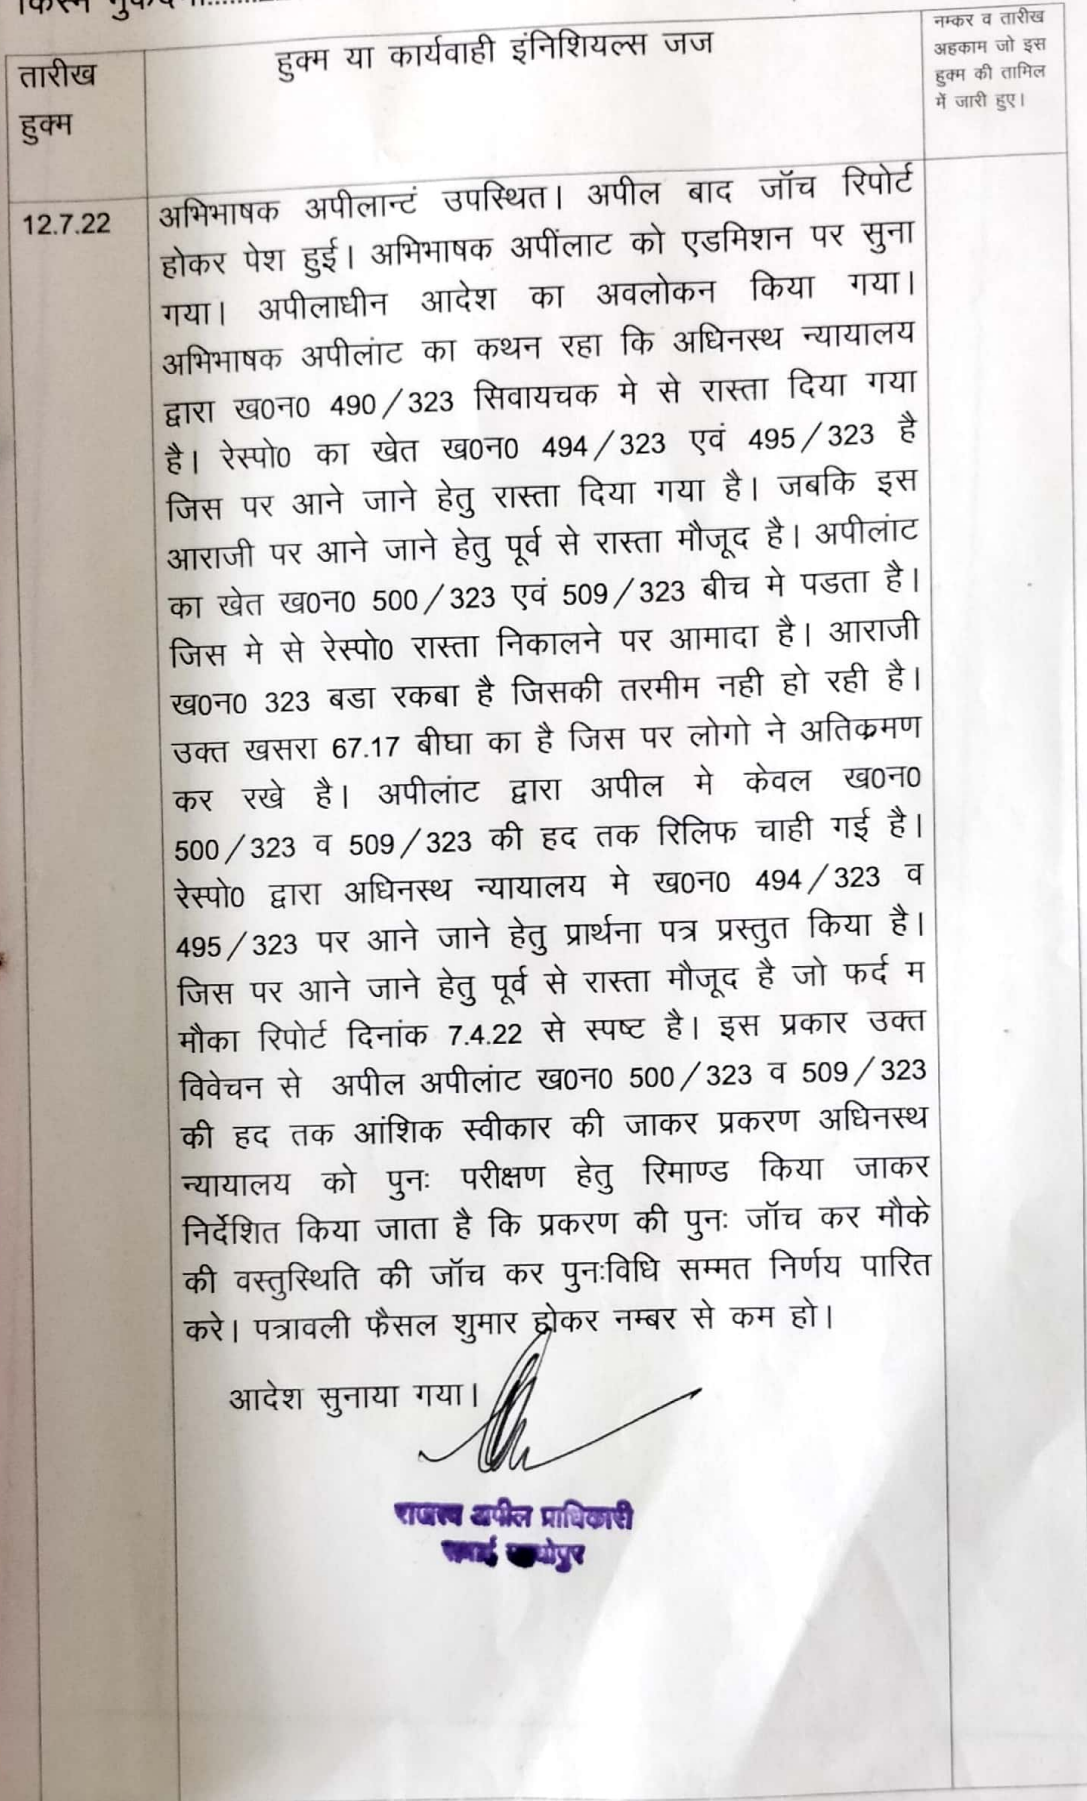 तारीख
हुक्म
हुक्म या कार्यवाही इंनिशियल्स जज
नम्कर व तारीख
अहकाम जो इस
हुक्म की तामिल
में जारी हुए।
12.7.22
अभिभाषक अपीलान्टं उपस्थित। अपील बाद जॉच रिपोर्ट
होकर पेश हुई। अभिभाषक अपींलाट को एडमिशन पर सुना
गया। अपीलाधीन आदेश का अवलोकन किया गया।
अभिभाषक अपीलांट का कथन रहा कि अधिनस्थ न्यायालय
द्वारा ख0न0 490/323 सिवायचक मे से रास्ता दिया गया
है। रेस्पो0 का खेत ख0न0 494/323 एवं 495/323 है
जिस पर आने जाने हेतु रास्ता दिया गया है। जबकि इस
आराजी पर आने जाने हेतु पूर्व से रास्ता मौजूद है। अपीलांट
का खेत ख0न0 500/323 एवं 509/323 बीच मे पडता है।
जिस मे से रेस्पो0 रास्ता निकालने पर आमादा है। आराजी
ख0न0 323 बडा रकबा है जिसकी तरमीम नही हो रही है।
उक्त खसरा 67.17 बीघा का है जिस पर लोगो ने अतिक्रमण
कर रखे है। अपीलांट द्वारा अपील मे केवल ख0न0
500/323 व 509/323 की हद तक रिलिफ चाही गई है।
रेस्पो0 द्वारा अधिनस्थ न्यायालय मे ख0न0 494/323 व
495/323 पर आने जाने हेतु प्रार्थना पत्र प्रस्तुत किया है।
जिस पर आने जाने हेतु पूर्व से रास्ता मौजूद है जो फर्द म
मौका रिपोर्ट दिनांक 7.4.22 से स्पष्ट है। इस प्रकार उक्त
विवेचन से अपील अपीलांट ख0न0 500/323 व 509/323
की हद तक आंशिक स्वीकार की जाकर प्रकरण अधिनस्थ
न्यायालय को पुनः परीक्षण हेतु रिमाण्ड किया जाकर
निर्देशित किया जाता है कि प्रकरण की पुनः जॉच कर मौके
की वस्तुस्थिति की जॉच कर पुनःविधि सम्मत निर्णय पारित
करे। पत्रावली फैसल शुमार होकर नम्बर से कम हो।
आदेश सुनाया गया।
राजस्व अपील प्राधिकारी